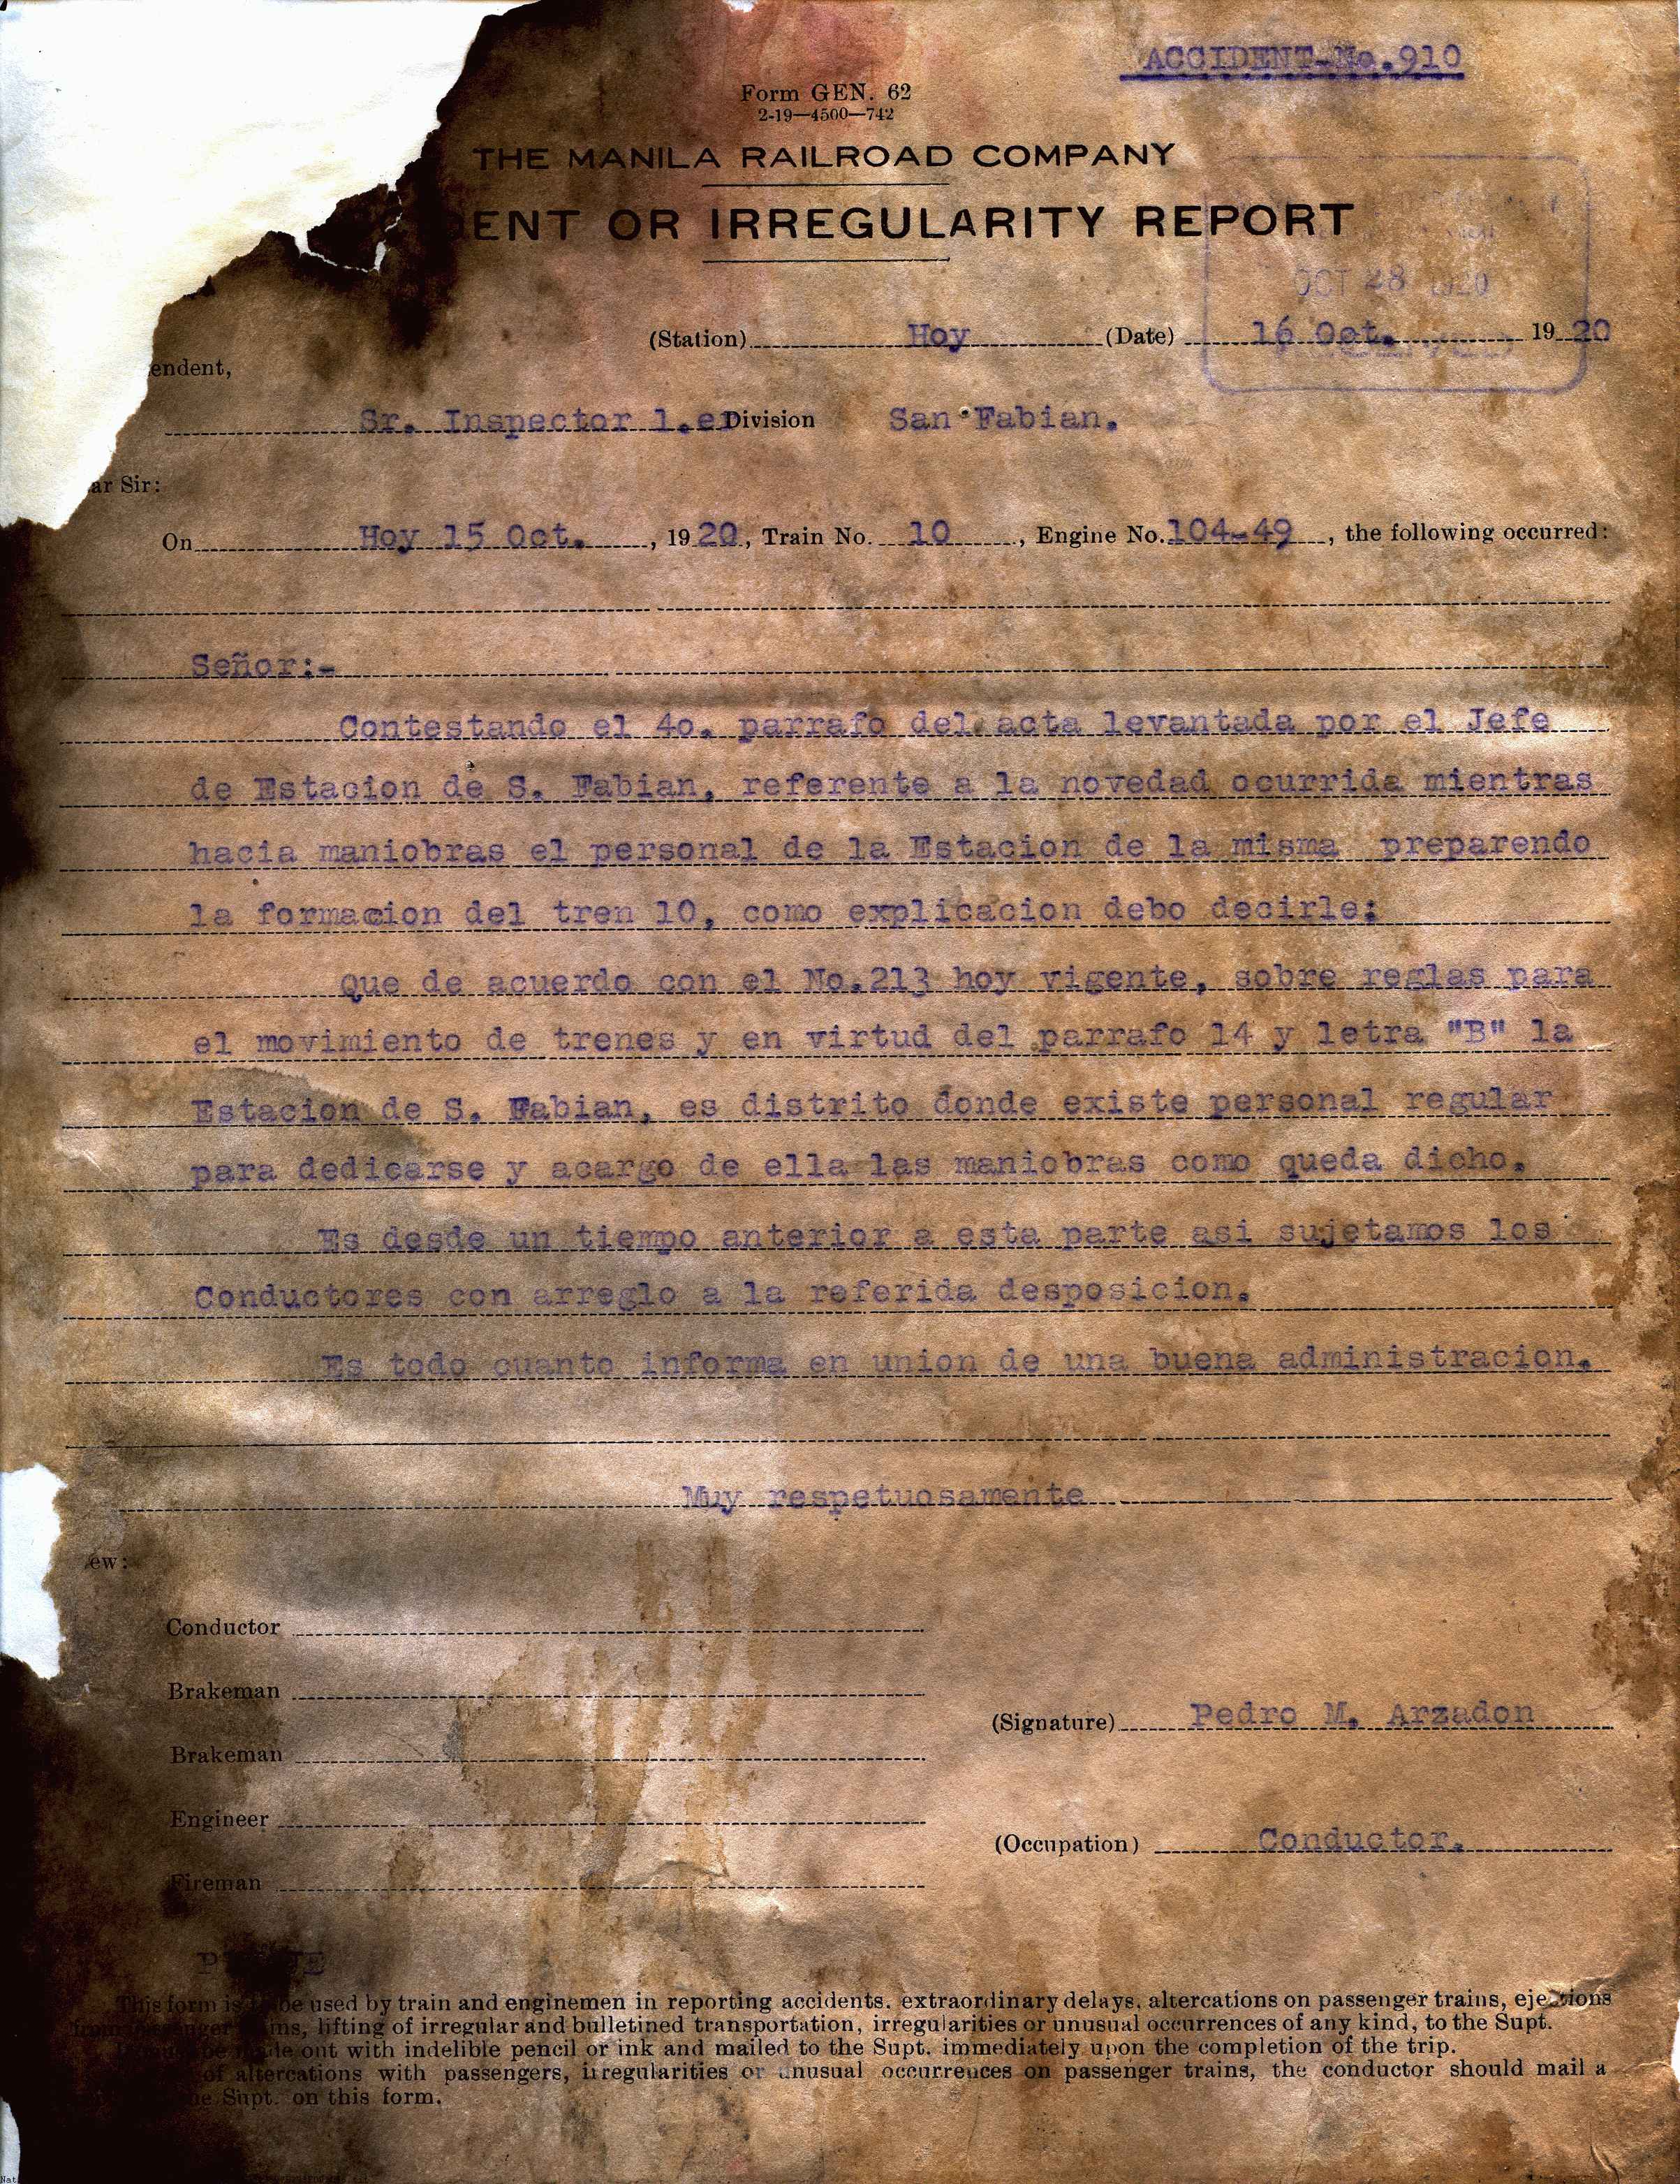 ACCIDENT-No.910
Form GEN. 62
2-19—4500—742
THE MANILA RAILROAD COMPANY
DENT OR IRREGULARITY REPORT
OCT 28 1920
(Station) Hoy (Date) 16 Oct. 1920
endent,
Sr. Inspector 1.er Division San Fabian.
ar Sir:
On Hoy 15 Oct. , 1920, Train No. 10 , Engine No. 104-49 , the following occurred:
Señor:-
Contestando el 4o. parrafo del acta levantada por el Jefe
de Estacion de S. Fabian, referente a la novedad ocurrida mientras
hacia maniobras el personal de la Estacion de la misma preparendo
la formacion del tren 10, como explicacion debo decirle:
Que de acuerdo con el No.213 hoy vigente, sobre reglas para
el movimiento de trenes y en virtud del parrafo 14 y letra "B" la
Estacion de S. Fabian, es distrito donde existe personal regular
para dedicarse y acargo de ella las maniobras como queda dicho.
Es desde un tiempo anterior a esta parte asi sujetamos los
Conductores con arreglo a la referida desposicion.
Es todo cuanto informa en union de una buena administracion.
Muy respetuosamente
ew:
Conductor
Brakeman
(Signature) Pedro M. Arzadon
Brakeman
Engineer
(Occupation) Conductor.
Fireman
This form is to be used by train and enginemen in reporting accidents, extraordinary delays, altercations on passenger trains, ejections
from passenger trains, lifting of irregular and bulletined transportation, irregularities or unusual occurrences of any kind, to the Supt.
made out with indelible pencil or ink and mailed to the Supt. immediately upon the completion of the trip.
of altercations with passengers, irregularities or unusual occurrences on passenger trains, the conductor should mail a
the Supt. on this form.